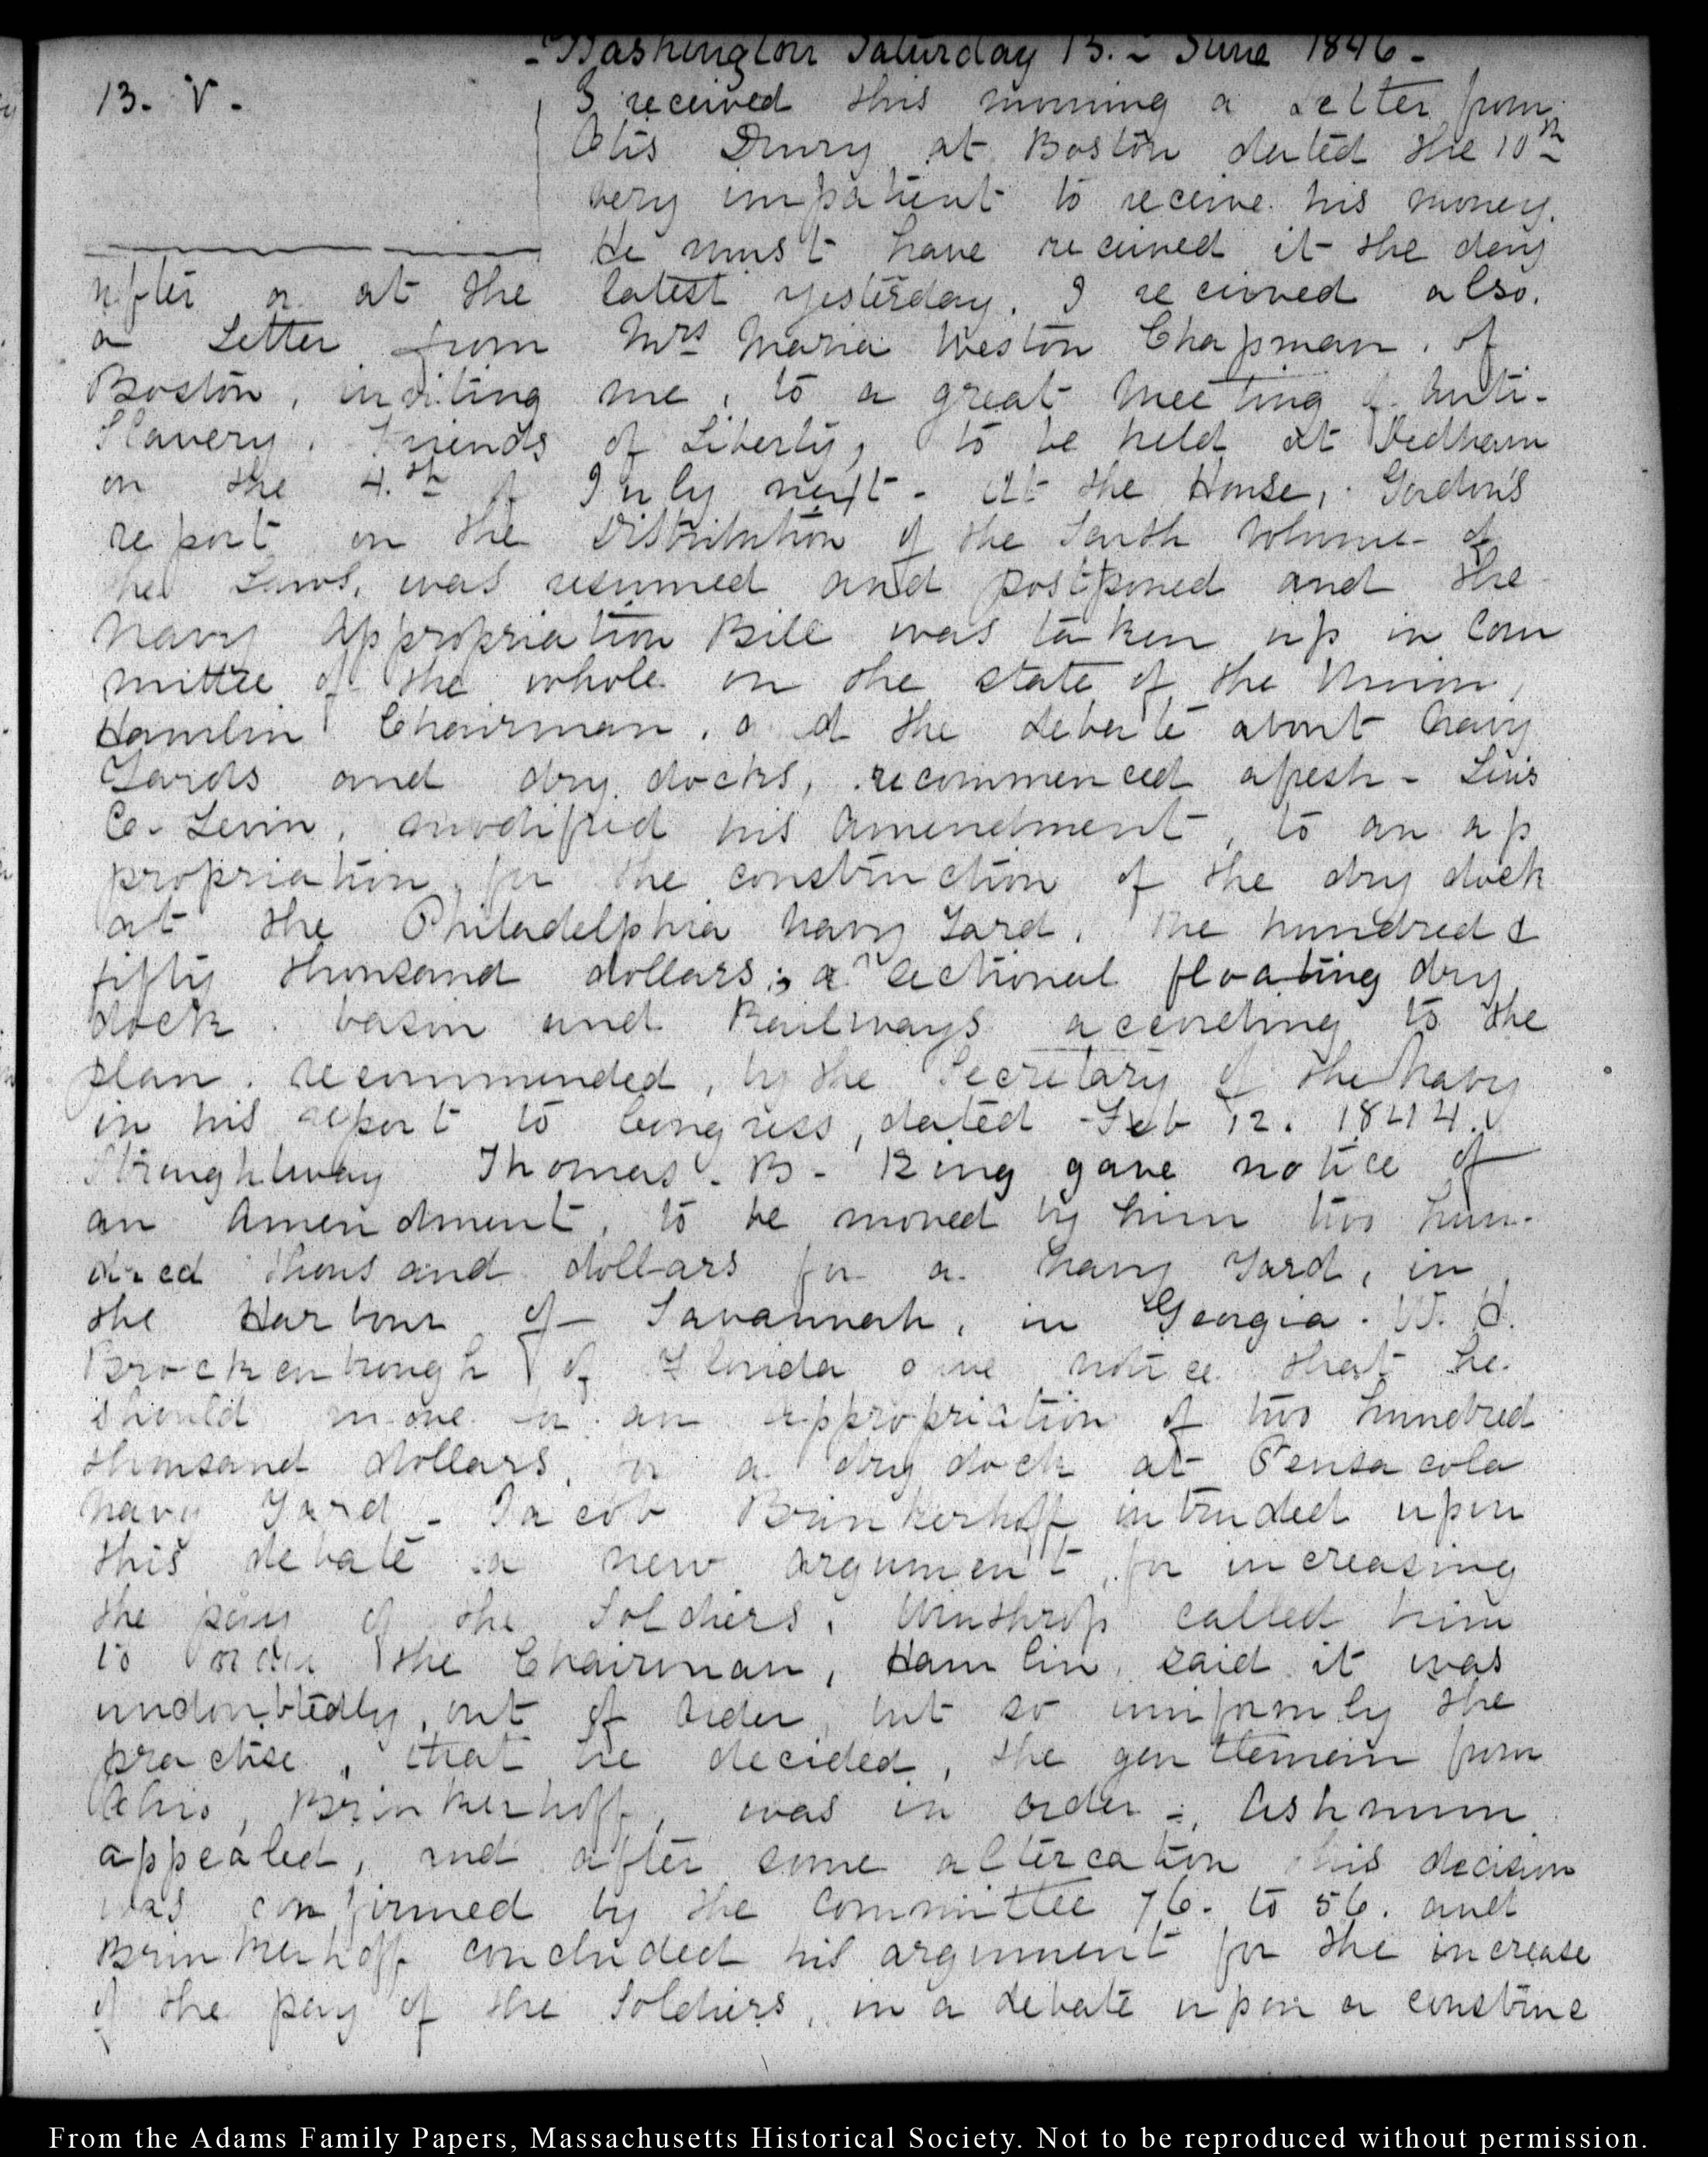 - Washington Saturday 13. - June 1846 -
13. V.
I received this morning a Letter from
Otis Drury at Boston dated the 10th
very impatient to receive his money.
He must have received it the day
after or at the latest yesterday. I received also.
a Letter from Mrs Maria Weston Chapman. of
Boston, inviting me, to a great Meeting of Anti-
Slavery. Friends of Liberty, to be held at Dedham
on the 4.th of July next - At the House, Gordon's
report on the Distribution of the Tenth Volume of
the Laws, was resumed and postponed and the
Navy Appropriation Bill was taken up in Com
mittee of the whole on the state of the Union,
Hamlin Chairman. and the debate about Navy
Yards and dry docks, recommenced afresh - Lewis
C. Levin, modified his Amendment, to an ap
propriation, for the construction of the dry dock
at the Philadelphia Navy Yard. One hundred &
fifty thousand dollars; a sectional floating dry
dock. basin and Railways according to the
plan. recommended, by the Secretary of the Navy
in his report to Congress, dated Feb 12. 1844.
Straightway Thomas. B - King gave notice of
an Amendment, to be moved by him two hun-
dred thousand dollars for a Navy Yard, in
the Harbour of Savannah, in Georgia. W. H.
Brockenbrough of Florida gave notice that he
should move for an appropriation of two hundred
thousand dollars, for a dry dock at Pensacola
Navy Yard - Jacob Brinkerhoff intruded upon
this debate a new argument, for increasing
the pay of the Soldiers. Winthrop called him
to order the Chairman, Hamlin, said it was
undoubtedly, out of order, but so uniformly the
practise, that he decided, the gentleman from
Ohio, Brinkerhoff, was in order -, Ashmun
appealed, and after some altercation this decision
was confirmed by the Committee 76. to 56. and
Brinkerhoff concluded his argument for the increase
of the pay of the Soldiers, in a debate upon a construc
From the Adams Family Papers, Massachusetts Historical Society. Not to be reproduced without permission.